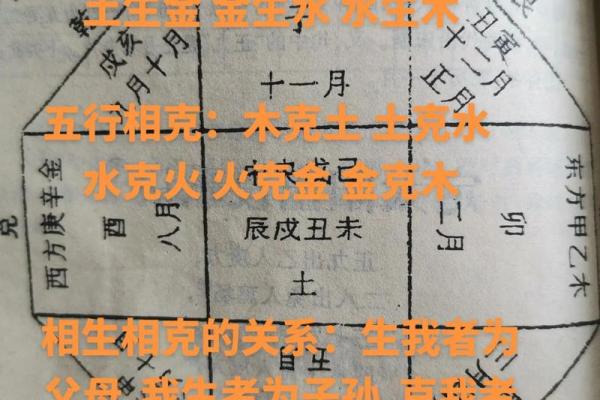 土生金 金生水 水生木
子
乾
戌亥
九月十月
十一月
艮
丑寅
十二月
正月
五行相克：木克土 土克水
水克火 火克金 金克木
克
西方庚辛金
酉
八月
中央戊己
辰戌丑未
土
二月
卯
东方甲乙木
相生相克的关系：生我者为
父母 我生者为子孙 克我者
五月
三月